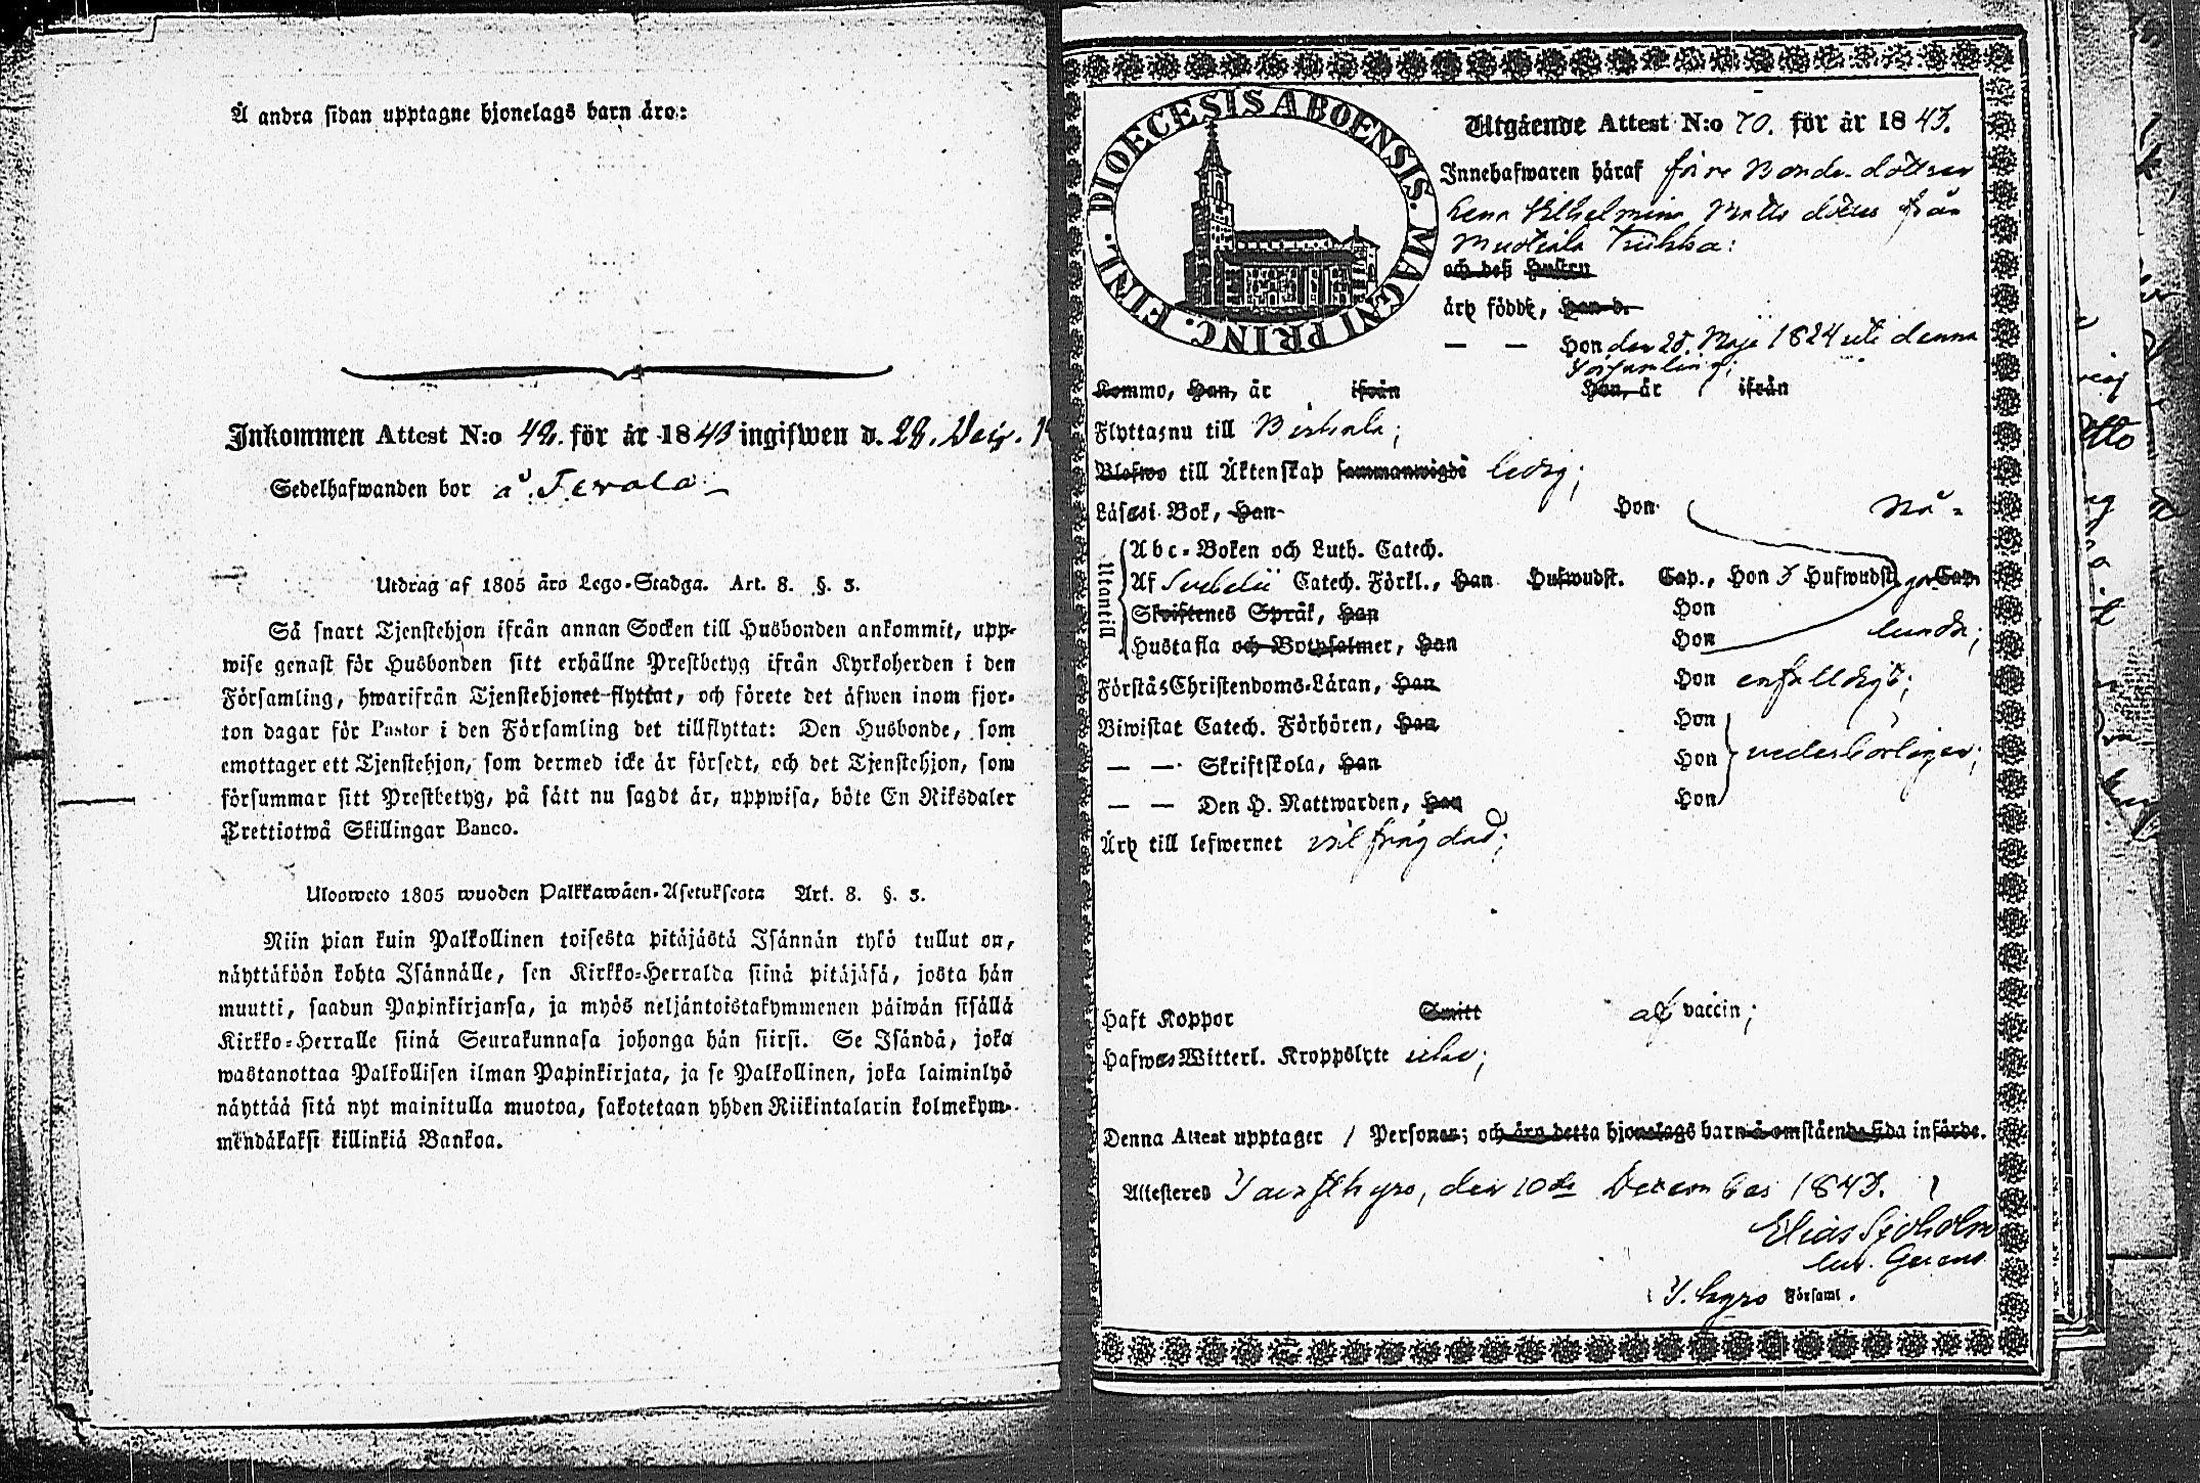 Å andra sidan upptagne hjonelags barn äro:
Inkommen Attest N:o 42. för år 1843 ingifwen d. 28.
Sedelhafwanden bor å
Utdrag af 1805 års Lego-Stadga. Art. 8. §. 3.
Så snart Tjenstehjon ifrån annan Socken till Husbonden ankommit, upp-
wise genast för Husbonden sitt erhållne Prestbetyg ifrån Kyrkoherden i den
Församling, hwarifrån Tjenstehjonet flyttat, och förete det äfwen inom fjor-
ton dagar för Pastor i den Församling det tillflyttat: Den Husbonde, som
emottager ett Tjenstehjon, som dermed icke är försedt, och det Tjenstehjon, som
försummar sitt Prestbetyg, på sätt nu sagdt är, uppwisa, böte En Riksdaler
Trettiotwå Skillingar Banco.
Ulosweto 1805 wuoden Palkkawäen-Asetuksesta Art. 8. §. 3.
Niin pian kuin Palkollinen toisesta pitäjästä Isännän tykö tullut on,
näyttäköön kohta Isännälle, sen Kirkko-Herralda siinä pitäjäsä, josta hän
muutti, saadun Papinkirjansa, ja myös neljäntoistakymmenen päiwän sisällä
Kirkko-Herralle siinä Seurakunnasa johonga hän siirsi. Se Isändä, joka
wastanottaa Palkollisen ilman Papinkirjata, ja se Palkollinen, joka laiminlyö
näyttää sitä nyt mainitulla muotoa, sakotetaan yhden Riikintalarin kolmekym-
mendäkaksi killinkiä Bankoa.
DIOECESIS ABOENSIS. MAGNI PRINC. FINL.
Utgående Attest N:o 70. för år 1843.
Innehafwaren häraf förre Bonde dottren
Lena Vilhelmina Matts dotter från
Mustiala
och deß Hustru
äro födde, Han d.
— — Hon den 28. Maji 1824 uti denna
Församling;
Kommo, Han, är ifrån Hon, är ifrån
Flyttas nu till Birkala;
Blefwo till Äktenskap sammanwigde ledig;
Läsa i Bok, Han Hon Nå-
Utantill
Abc-Boken och Luth. Catech.
Af Svebelii Catech. Förkl., Han Hufwudst. Cap., Hon 3 Hufwudst. Cap.
Skriftenes Språk, Han Hon
Hustafla och Botpsalmer, Han Hon lunda;
Förstås Christendoms-Läran, Han Hon enfalldigt;
Biwistat Catech. Förhören, Han Hon
— — Skriftskola, Han Hon vederbörligen;
— — Den H. Nattwarden, Han Hon
Äro till lefwernet väl frägdad;
Haft Koppor Smitt af vaccin;
Hafwes Witterl. Kroppslyte icke;
Denna Attest upptager 1 Personer; och äro detta hjonelags barn å omstående sida införde.
Attesteres Tavastkyro, den 10de December 1843.
Elias Sjöholm
T. kyro Församl.